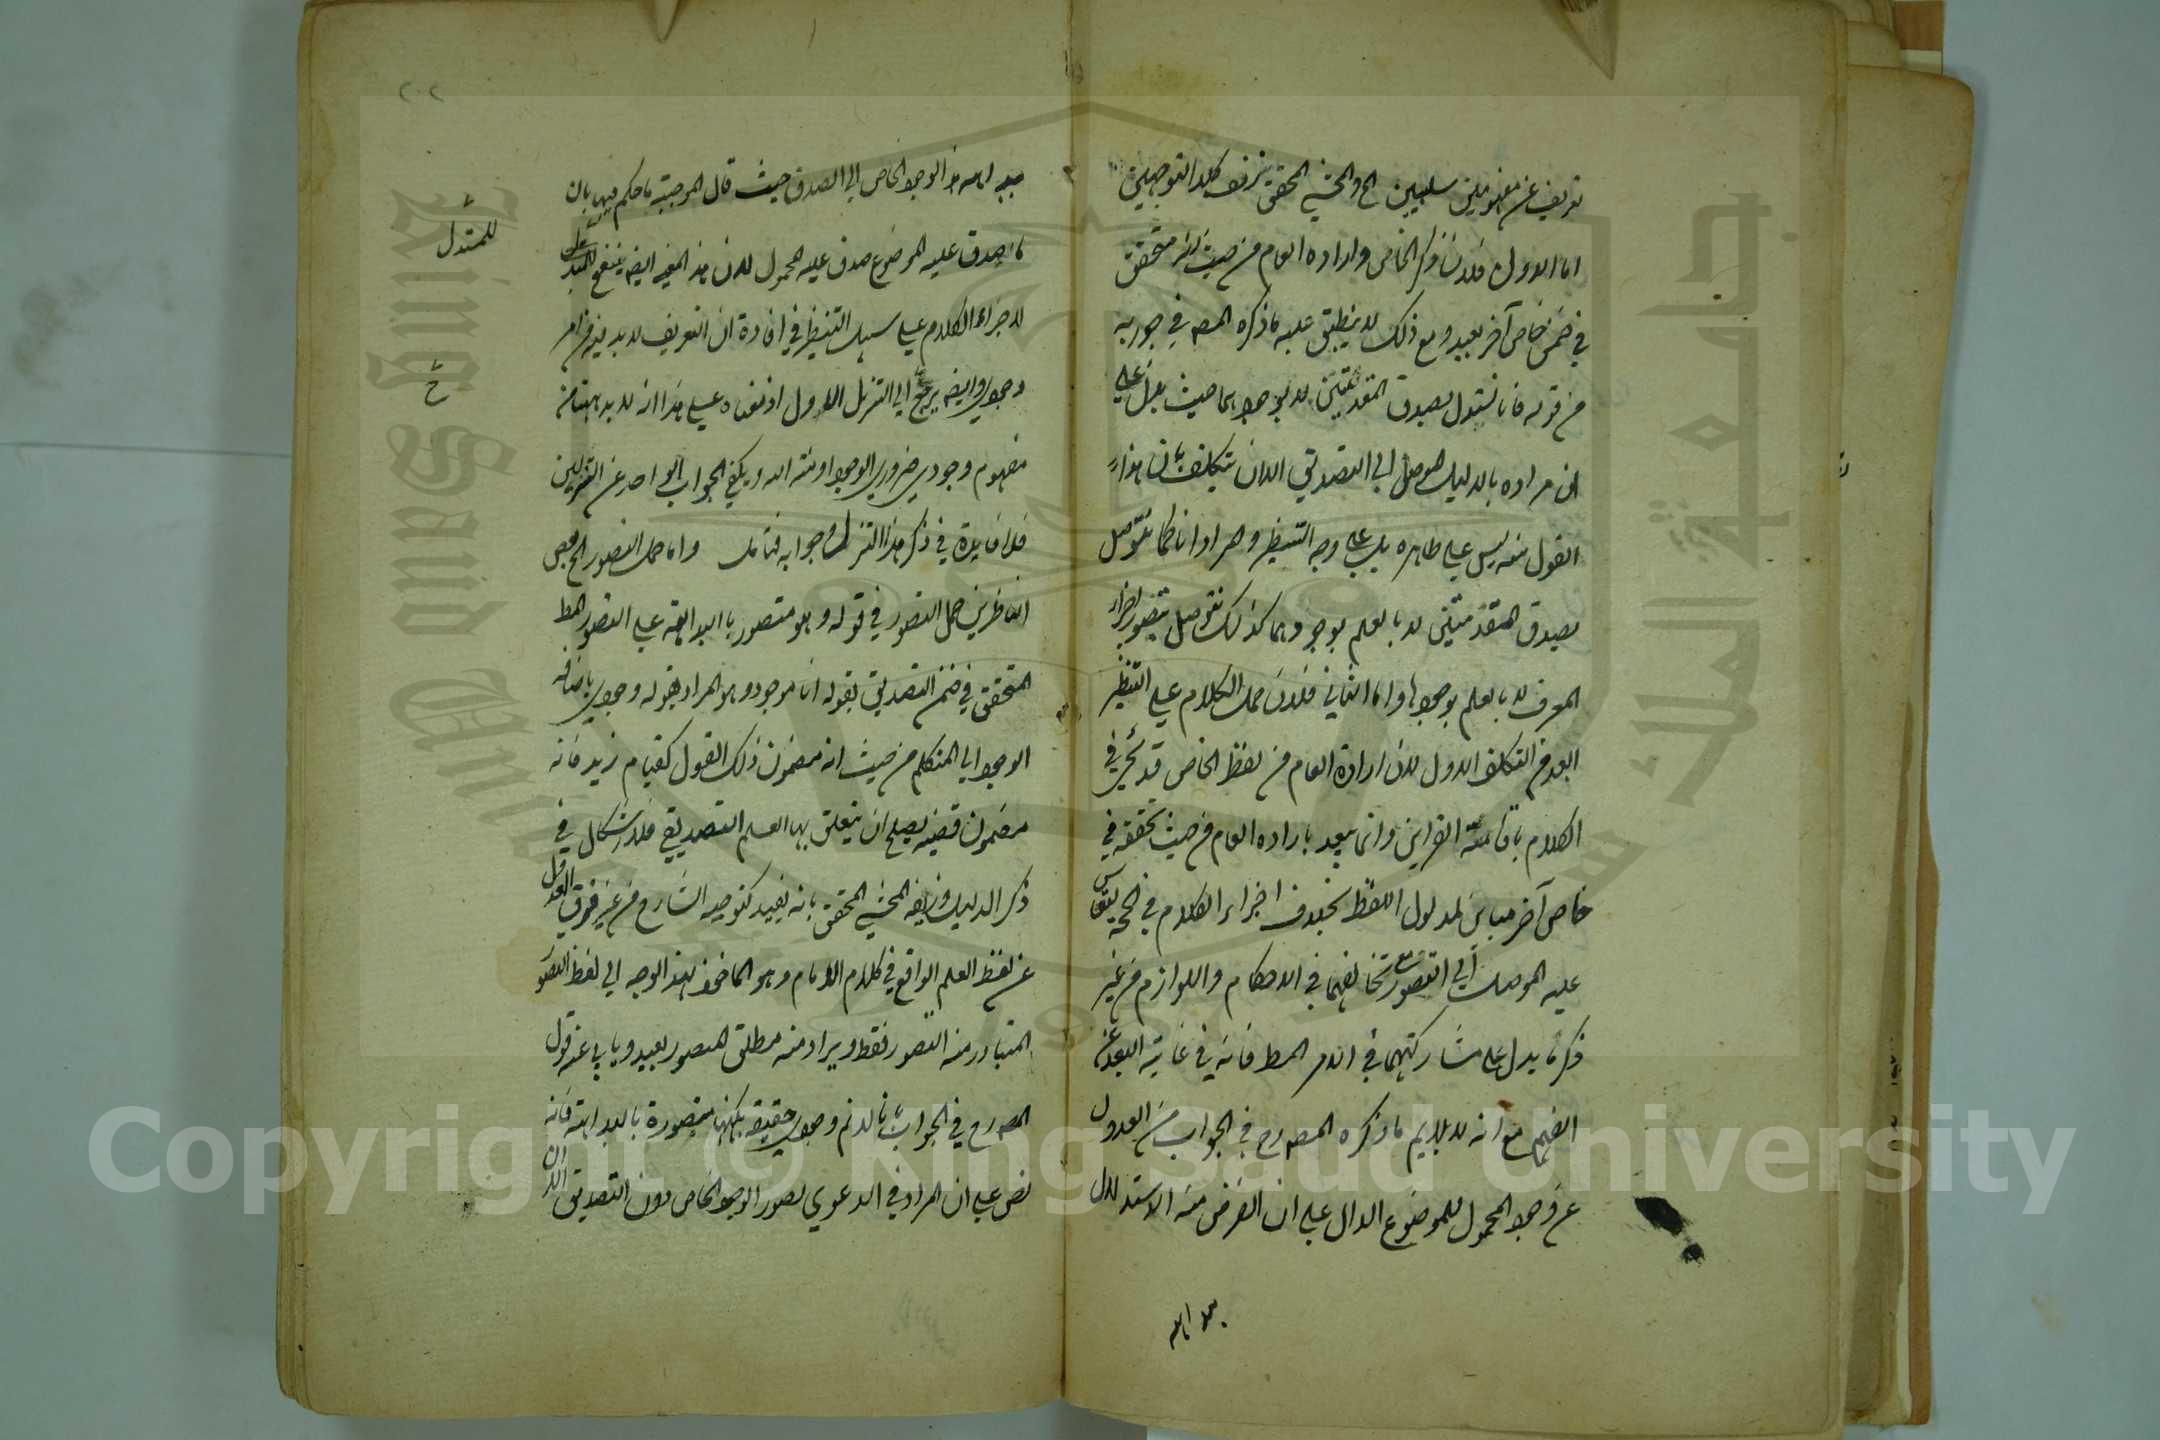 تعريف عن مفهومين سلبيين الخ والمحشي المحقق كلا التوجيهين
اما الاول فلان ذكر الخاص وارادة العام من حيث انه متحقق
في ضمن خاص آخر بعيد ومع ذلك لا ينطبق عليه ما ذكره المصـ في جوابه
من قوله فانا نستدل بصدق المقدمتين لا بوجودهما حيث يدل على
ان مراده بالدليل الموصل الى التصديق الا ان يتكلف بان هذا
القول منه ليس على ظاهره بل على وجه التنظير ومراده انا كما نتوصل
بصدق المقدمتين لا بالعلم بوجودهما كذلك نتوصل بتصور اجزاء
المعرف لا بالعلم بوجودها واما الثاني فلان حمل الكلام على التنظير
ابعد من التكلف الاول لان ارادة العام من لفظ الخاص قد يجري في
الكلام باقامة القراين وانما يبعد بارادة العام من حيث تحققه في
خاص آخر مباين لمدلول اللفظ بخلاف اجراء الكلام في الحجة ليقاس
عليه الموصل الى التصور مع تخالفهما في الاحكام واللوازم من غير
ذكر ما يدل على مشاركتهما في الامر المط فانه في غاية البعد عن
الفهم مع انه لا يلايم ما ذكره المصـ رح في الجواب من العدول
عن وجود المحمول للموضوع الدال على ان الغرض منه الاستدلال
٢٠٢
هذا الوجود الخاص الى الصدق حيث قال الموجبة ما حكم فيها بان
ما صدق عليه الموضوع صدق عليه المحمول لان هذ المعنى ايضـ ينفع
للمستدل
لاجراء الكلام على سبيل التنظير في افادة ان التعريف لا بد فيه من امر
وجودي وايضـ يرجع الى التنزل الاول اذ مفاده على هذا انه لا بد ههنا من
ح
مفهوم وجودي ضروري الوجود او منته اليه ويكفي الجواب الواحد عن التنزلين
فلا فايدة في ذكر هذا التنزل وجوابه فتأمل واما حمل التصور الخ بعض
الناظرين حمل التصور في قوله وهو متصور بالبداهة على التصور المط
المتحقق في ضمن التصديق بقوله انا موجود وهو المراد بقوله وجودي باضافة
الوجود الى المتكلم من حيث انه مضمون ذلك القول كقيام زيد فانه
مضمون قضيه يصلح ان يتعلق بها العلم التصديقي فلا اشكال في
ذكر الدليل وزيفه المحشي المحقق بانه بعيد كتوجيه الشارح من غير فرق العدول
عن لفظ العلم الواقع في كلام الامام وهو الماخوذ لهذ الوجه الى لفظ التصور
المتبادر منه التصور فقط ويراد منه مطلق التصور بعيد ويابى عنه قول
المصـ رح في الجواب بانا لا نم وجودي حقيقة بكنهها متصورة بالبداهة فانه
نص على ان المراد في الدعوى تصور الوجود الخاص دون التصديق الا ان
Copyright © King Saud University
King Saud University
جامعة الملك سعود
1957